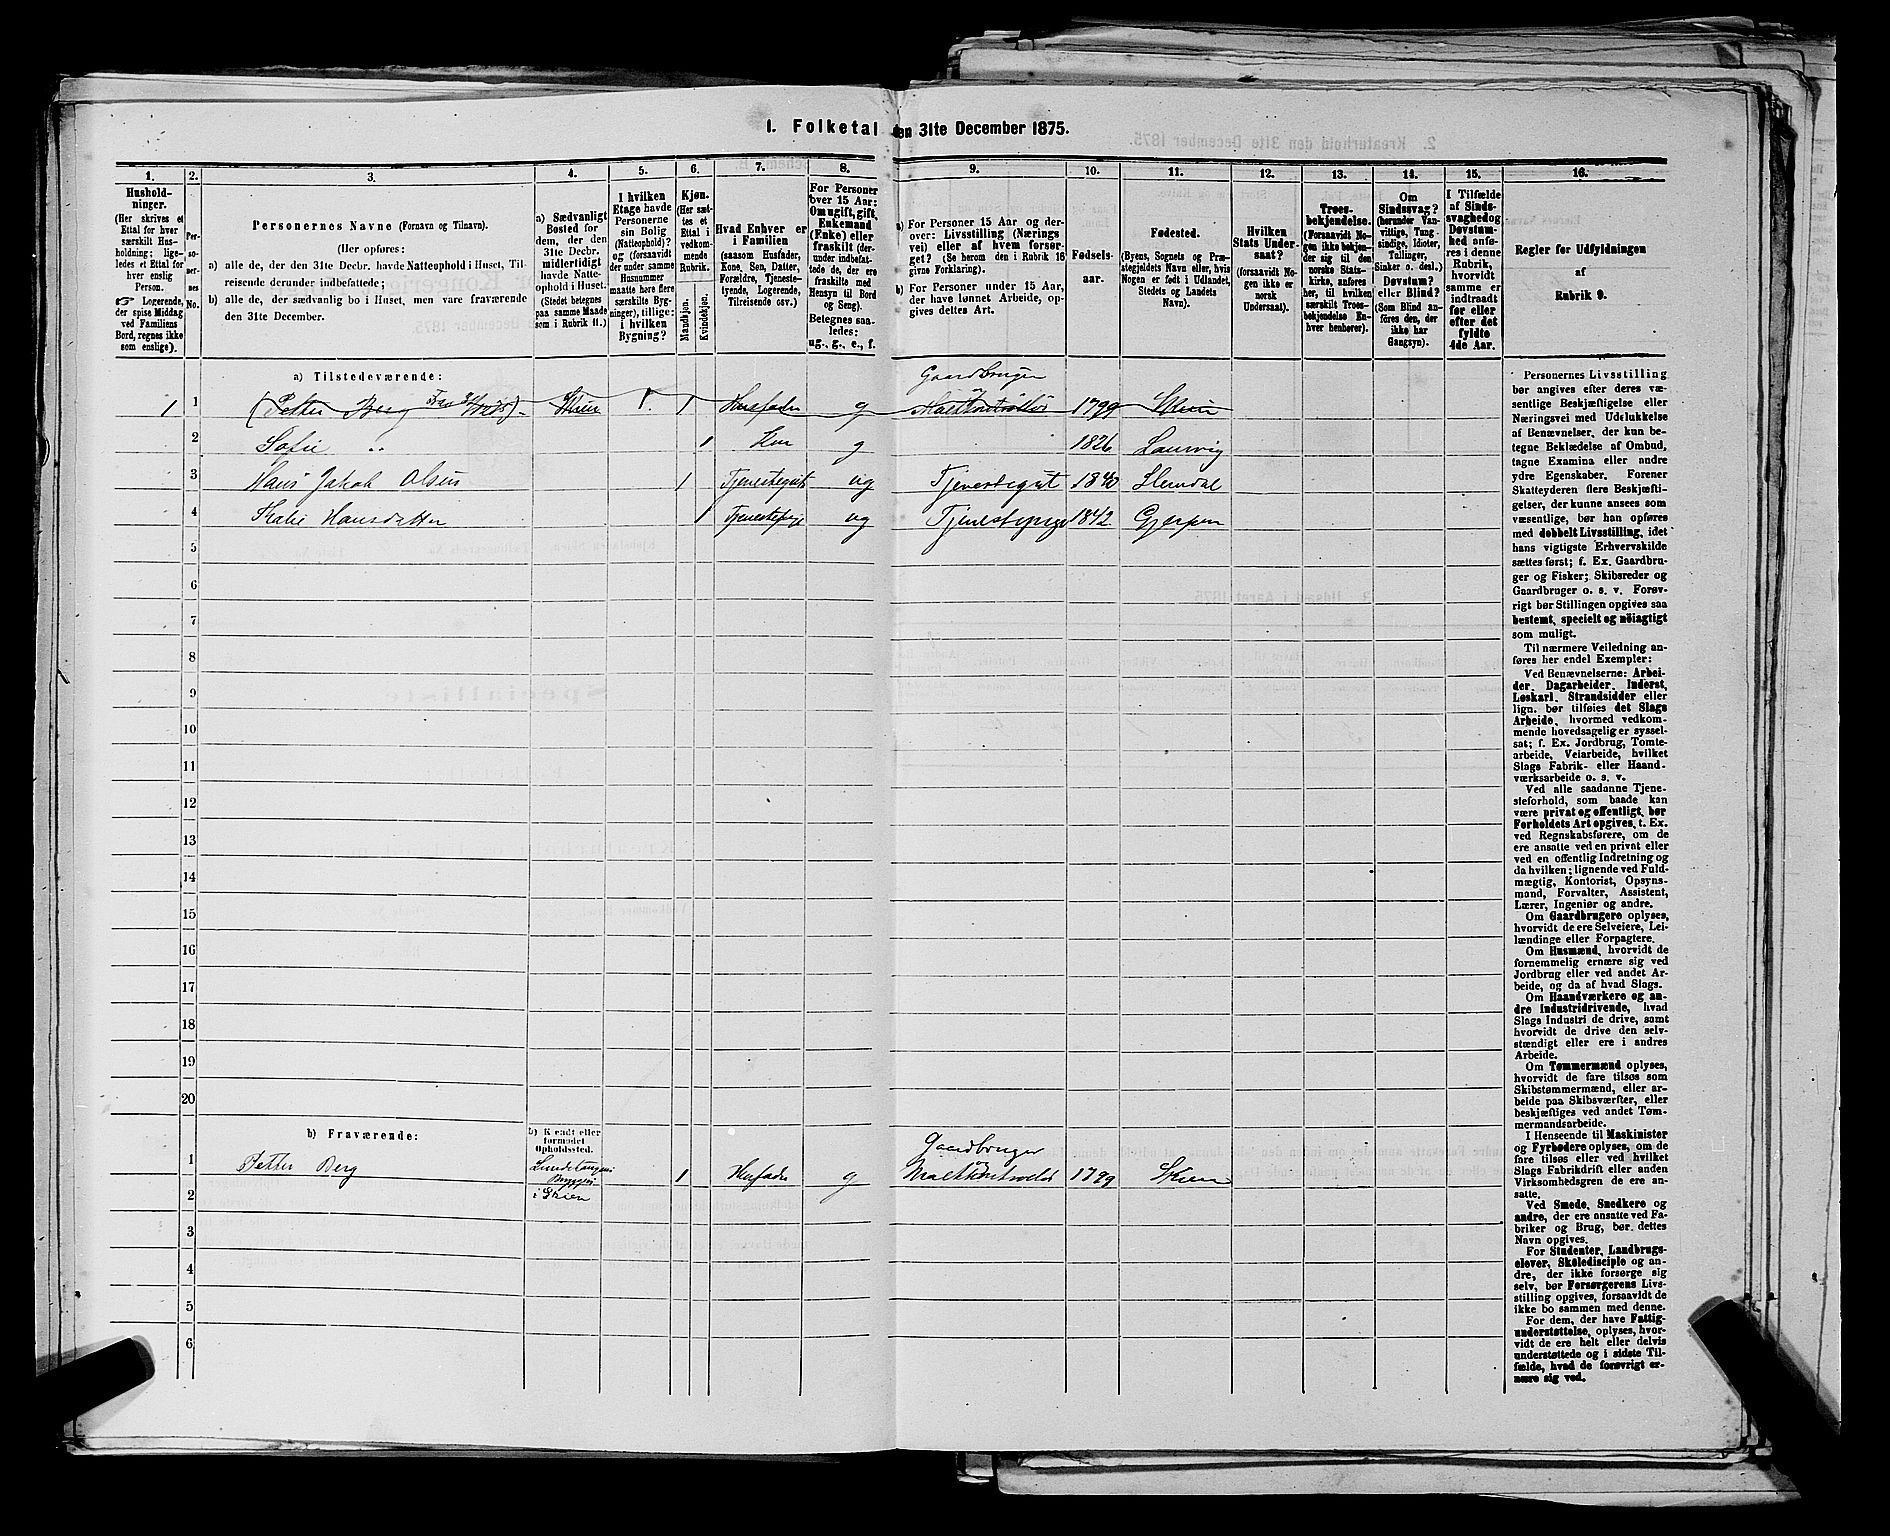 1. Folketal den 31te December 1875.
1. 2. 3. 4. 5. 6. 7. 8. 9. 10. 11. 12. 13. 14. 15. 16.
Hushold-
ninger.
(Her skrives et
Ettal for hver
særskilt Hus-
holdning; lige-
ledes et Ettal for
hver enslig
Person.
☞ Logerende,
der spise Middag
ved Familiens
Bord, regnes ikke
som enslige).
Per-
so-
ner-
nes
No.
Personernes Navne (Fornavn og Tilnavn).
(Her opføres:
a) alle de, der den 31te Decbr. havde Natteophold i Huset, Til-
reisende derunder indbefattede;
b) alle de, der sædvanlig bo i Huset, men vare fraværende
den 31te December.
a) Sædvanligt
Bosted for
dem, der den
31te Decbr.
midlertidigt
havde Natte-
ophold i Huset.
(Stedet betegnes
paa samme Maade
som i Rubrik 11.)
I hvilken
Etage havde
Personerne
sin Bolig
(Natteophold)?
og (forsaavidt
der under samme
Husnummer
maatte høre flere
særskilte Byg-
ninger), tillige:
i hvilken
Bygning?
Kjøn.
(Her sæt-
tes et
Ettal i
vedkom-
mende
Rubrik.
Mandkjøn.
Kvindekjøn.
Hvad Enhver er
i Familien
(saasom Husfader,
Kone, Søn, Datter,
Forældre, Tjeneste-
tyende, Logerende,
Tilreisende osv.)
For Personer
over 15 Aar:
Om ugift, gift,
Enkemand
(Enke) eller
fraskilt (der-
under indbefat-
tede de, der ere
fraskilte med
Hensyn til Bord
og Seng).
Betegnes saa-
ledes:
ug., g., e., f.
a) For Personer 15 Aar og der-
over: Livsstilling (Nærings-
vei) eller af hvem forsør-
get? (Se herom den i Rubrik 16
givne Forklaring).
b) For Personer under 15 Aar,
der have lønnet Arbeide, op-
gives dettes Art.
Fødsels-
aar.
Fødested.
(Byens, Sognets og Præ-
stegjeldets Navn eller, hvis
Nogen er født i Udlandet,
Stedets og Landets
Navn).
Hvilken
Stats Under-
saat?
(forsaavidt No-
gen ikke er
norsk
Undersaat).
Troes-
bekjendelse.
(Forsaavidt No-
gen ikke bekjen-
der sig til den
norske Stats-
kirke, anføres
her, til hvilken
særskilt Troes-
bekjendelse En-
hver henhører).
Om
Sindssvag?
(herunder Van-
vittige, Tung-
sindige, Idioter,
Tullinger,
Sinker o. desl.)
Døvstum?
eller Blind?
(Som Blind an-
føres den, der
ikke har
Gangsyn).
I Tilfælde
af Sinds-
svaghed og
Døvstum-
hed anfø-
res i denne
Rubrik,
hvorvidt
samme er
indtraadt
før eller
efter det
fyldte
4de Aar.
Regler for Udfyldningen
af
Rubrik 9.
a) Tilstedeværende:
Gaardbruger
1 1 Petter Berg Skien 1. 1 Husfader g 1799 Skien
2 Sofie " 1 Kone g 1826 Laurvig
3 Hans Jakob Olsen 1 Tjenestegut ug Tjenestegut 1840 Slemdal
4 Kari Hansdatter 1 Tjenestepige ug Tjenestepige 1842 Gjerpen
5
6
7
8
9
10
11
12
13
14
15
16
17
18
19
20
b) Fraværende:
b) Kjendt eller
formodet
Opholdssted.
Gaardbruger
1 Petter Berg 1 Husfader g 1799 Skien
2 i Skien
3
4
5
6
Personernes Livsstilling
bør angives efter deres væ-
sentlige Beskjæftigelse eller
Næringsvei med Udelukkelse
af Benævnelser, der kun be-
tegne Beklædelse af Ombud,
tagne Examina eller andre
ydre Egenskaber. Forener
Skatteyderen flere Beskjæfti-
gelser, der kunne ansees som
væsentlige, bør han opføres
med dobbelt Livsstilling, idet
hans vigtigste Erhvervskilde
sættes først; f. Ex. Gaardbru-
ger og Fisker; Skibsreder og
Gaardbruger o. s. v. Forøv-
rigt bør Stillingen opgives saa
bestemt, specielt og nøiagtigt
som muligt.
Til nærmere Veiledning an-
føres her endel Exempler:
Ved Benævnelserne: Arbei-
der, Dagarbeider, Inderst,
Løskarl, Strandsidder eller
lign. bør tilføies det Slags
Arbeide, hvormed vedkom-
mende hovedsagelig er syssel-
sat; f. Ex. Jordbrug, Tomte-
arbeide, Veiarbeide, hvilket
Slags Fabrik- eller Haand-
værksarbeide o. s. v.
Ved alle saadanne Tjene-
steforhold, som baade kan
være privat og offentligt, bør
Forholdets Art opgives, t. Ex.
ved Regnskabsførere, om de
ere ansatte ved en privat eller
ved en offentlig Indretning og
da hvilken; lignende ved Fuld-
mægtig, Kontorist, Opsyns-
mand, Forvalter, Assistent,
Lærer, Ingeniør og andre.
Om Gaardbrugere oplyses,
hvorvidt de ere Selveiere, Lei-
lændinge eller Forpagtere.
Om Husmænd, hvorvidt de
fornemmelig ernære sig ved
Jordbrug eller ved andet Ar-
beide, og da af hvad Slags.
Om Haandværkere og an-
dre Industridrivende, hvad
Slags Industri de drive, samt
hvorvidt de drive den selv-
stændigt eller ere i andres
Arbeide.
Om Tømmermænd oplyses,
hvorvidt de fare tilsøs som
Skibstømmermænd, eller ar-
beide paa Skibsværfter, eller
beskjæftiges ved andet Tøm-
mermandsarbeide.
I Henseende til Maskinister
og Fyrbødere oplyses, om de
fare tilsøs eller ved hvilket
Slags Fabrikdrift eller anden
Virksomhedsgren de ere an-
satte.
Ved Smede, Snedkere og
andre, der ere ansatte ved Fa-
briker og Brug, bør dettes
Navn opgives.
For Studenter, Landbrugs-
elever, Skoledisciple og an-
dre, der ikke forsørge sig
selv, bør Forsørgerens Livs-
stilling opgives, forsaavidt de
ikke bo sammen med denne.
For dem, der have Fattig-
understøttelse, oplyses, hvor-
vidt de ere helt eller delvis
understøttede og i sidste Til-
fælde, hvad de forøvrigt er-
nære sig ved.